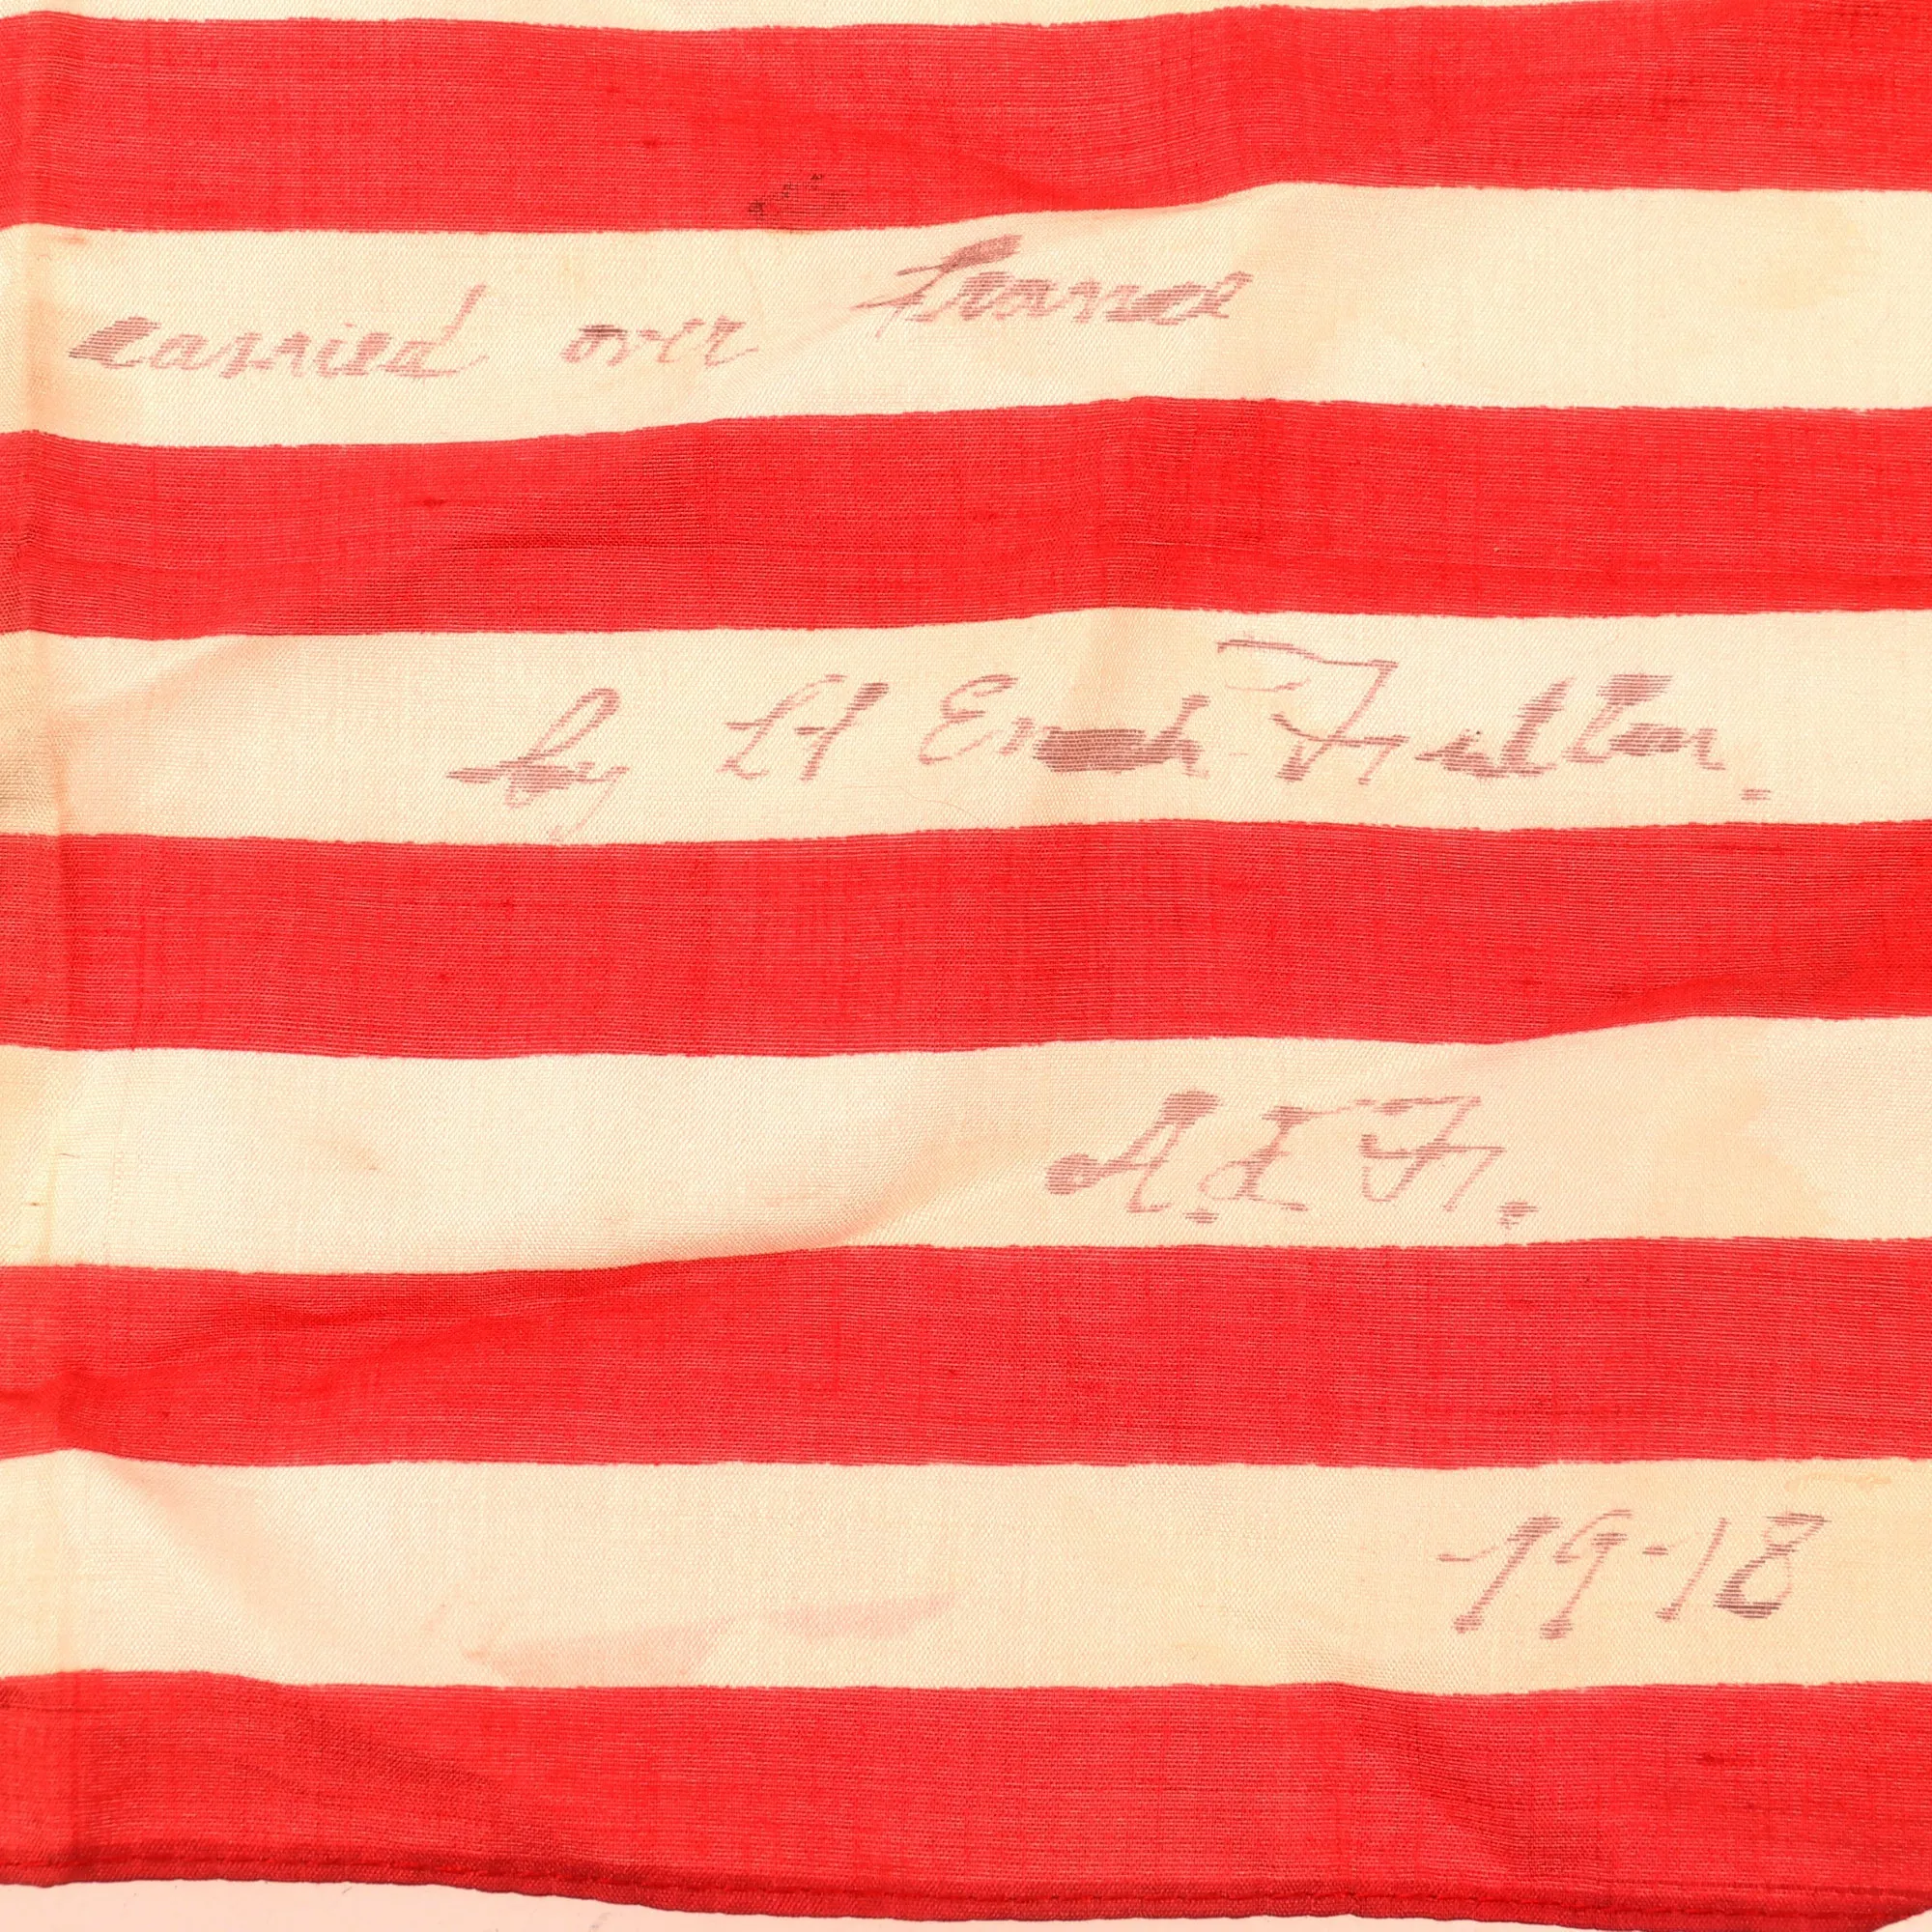 carried over France
by Lt Enoch Fuller.
A.E.F.
19-18